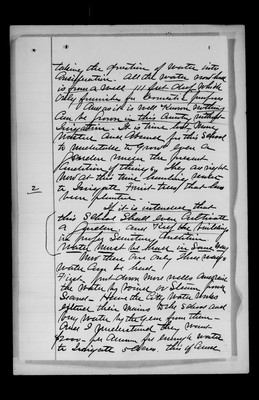 taking the question of water into
Consideration. All the water now had
is from a well 111 feet deep which
only furnishes for domestic purposes
And as it is well known nothing
Can be grown in this County without
Irrigation. It is time lost, Money
wasted and Absurd for this School
to undertake to grow even a
garden under the present
Condition of things, they are right
now at this time hauling water
to Irrigate fruit trees that have
been planted.
2
If it is intended that
this School shall ever Cultivate
a garden and Keep the buildings
in proper Sanitary Condition
Water must be had in some way
Now there are only three ways
Water Can be had.
First put down More wells and raise
the water by Wind or Steam power
Second Have the City Water Works
extend their Mains to the School and
buy water by the year from them
and I understand they want
per Annum for enough water
to Irrigate 5 acres, this of Course